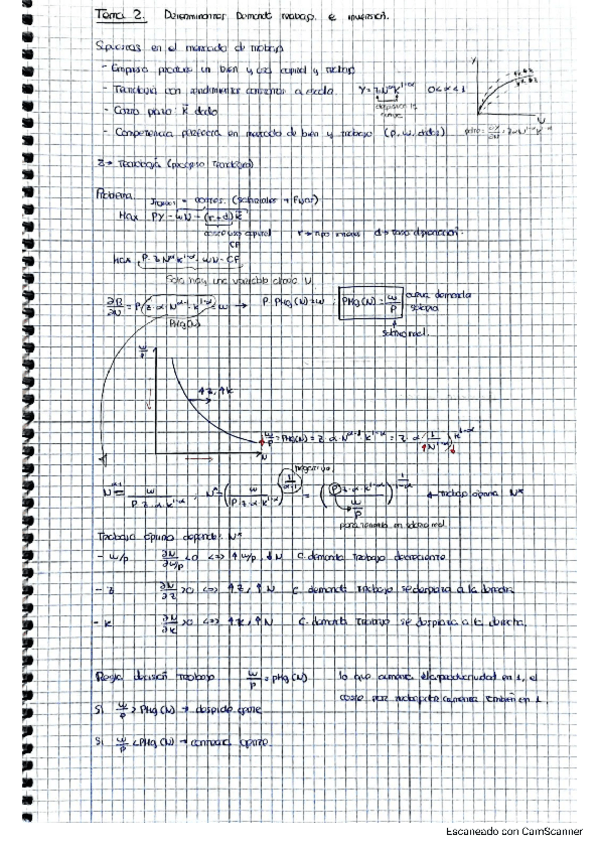 Tema 2. Determinantes Demanda trabajo e inversión.
Supuestos en el mercado de trabajo
- Empresa produce un bien y usa capital y trabajo
- Tecnología con rendimientos constantes a escala Y = z N^α K^1-α 0<α<1
- Corto plazo: K dado
- Competencia perfecta en mercado de bien y trabajo (P, w, dados)
z → Tecnología (progreso tecnológico)
Problema
Max PY - wN - (r+d)K
coste uso capital r → tipo interés d → tasa depreciación.
CF
Max P·z N^α K^1-α - wN - CF
Solo hay una variable N
P·PMg(N)=w ; PMg(N) = w/P curva demanda
PMg(N)
salario real.
w/P
↑z, ↑k
w/P = PMg(N) = z·α·N^α-1·K^1-α = z·α (1/N^1-α) K^1-α
N
negativo.
← trabajo óptimo N*
Trabajo óptimo depende: N*
- w/p ∂N/∂w/p <0 <=> ↑w/p, ↓N C. demanda trabajo decreciente
- z ∂N/∂z >0 <=> ↑z, ↑N C. demanda trabajo se desplaza a la derecha
- k ∂N/∂k >0 <=> ↑k, ↑N C. demanda trabajo se desplaza a la derecha.
Regla decisión trabajo w/p = PMg(N) lo que aumenta la productividad en 1, el
coste por trabajador aumenta también en 1.
Si w/p > PMg(N) → despide
Si w/p < PMg(N) → contrata
Escaneado con CamScanner